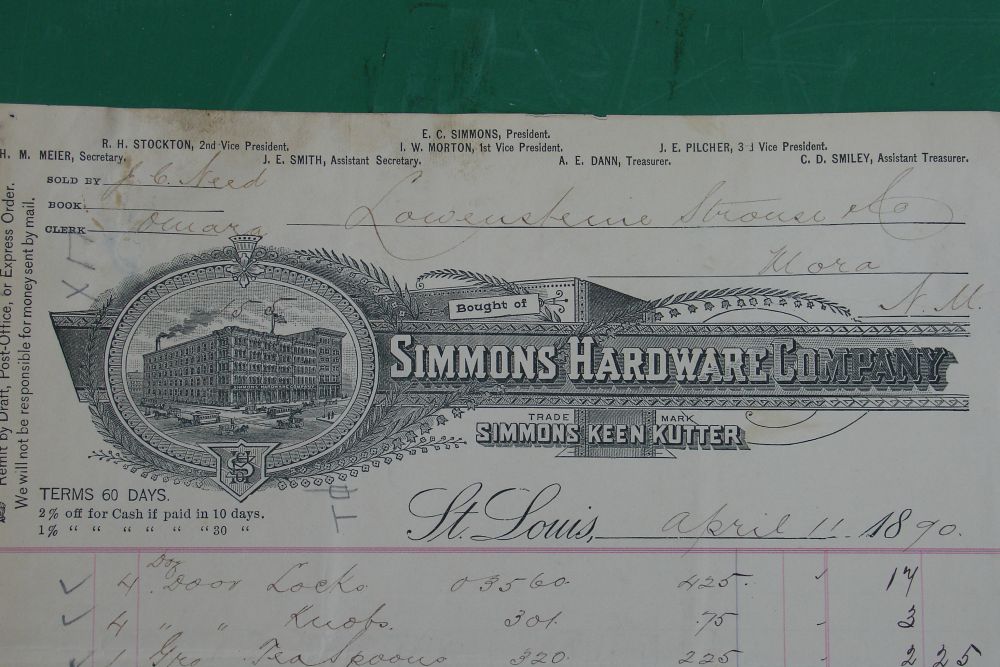 E. C. SIMMONS, President.
R. H. STOCKTON, 2nd Vice President. I. W. MORTON, 1st Vice President. J. E. PILCHER, 3d Vice President.
H. M. MEIER, Secretary. J. E. SMITH, Assistant Secretary. A. E. DANN, Treasurer. C. D. SMILEY, Assistant Treasurer.
SOLD BY J. C. Need
BOOK
CLERK Omara
Lowensteine Strouse & Co
Mora
N. M.
Remit by Draft, Post-Office, or Express Order.
We will not be responsible for money sent by mail.
Bought of
SIMMONS HARDWARE COMPANY
TRADE MARK
SIMMONS KEEN KUTTER
TERMS 60 DAYS.
2% off for Cash if paid in 10 days.
1% " " " " " " 30 "
St. Louis, April 11 1890.
4 Doz Door Locks 03560 425 17
4 " " Knobs 301 .75 3
1 Gro Tea Spoons 320 225 2 25